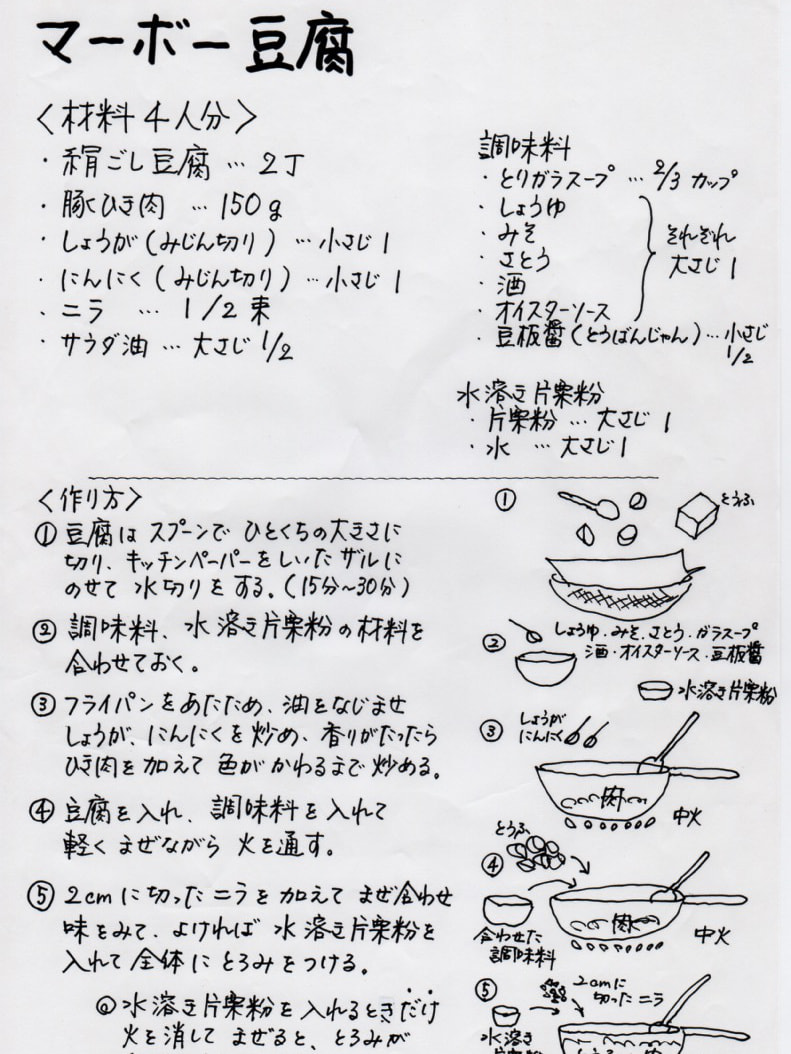 マーボー豆腐
〈材料4人分〉
・絹ごし豆腐 … 2丁
・豚ひき肉 … 150g
・しょうが(みじん切り) … 小さじ1
・にんにく(みじん切り) … 小さじ1
・ニラ … 1/2束
・サラダ油 … 大さじ1/2
調味料
・とりガラスープ … 2/3カップ
・しょうゆ
・みそ
・さとう
・酒
・オイスターソース
それぞれ
大さじ1
・豆板醤(とうばんじゃん)…小さじ
1/2
水溶き片栗粉
・片栗粉 … 大さじ1
・水 … 大さじ1
〈作り方〉
① 豆腐は スプーンで ひとくちの大きさに
切り、キッチンペーパーをしいた ザルに
のせて 水切りを する。(15分~30分)
② 調味料、水溶き片栗粉の材料を
合わせておく。
③ フライパンをあたため、油をなじませ
しょうが、にんにくを炒め、香りがたったら
ひき肉を加えて 色がかわるまで炒める。
④ 豆腐を入れ、調味料を入れて
軽く まぜながら 火を通す。
⑤ 2cmに切ったニラを加えて まぜ合わせ
味をみて、よければ 水溶き片栗粉を
入れて 全体に とろみをつける。
◎水溶き片栗粉を 入れるときだけ
火を消して まぜると、とろみが
① とうふ
② しょうゆ・みそ・さとう・ガラスープ
酒・オイスターソース・豆板醤
水溶き片栗粉
③ しょうが
にんにく
肉
中火
とうふ
④
肉
合わせた
調味料
中火
⑤ 2cmに
切ったニラ
水溶き